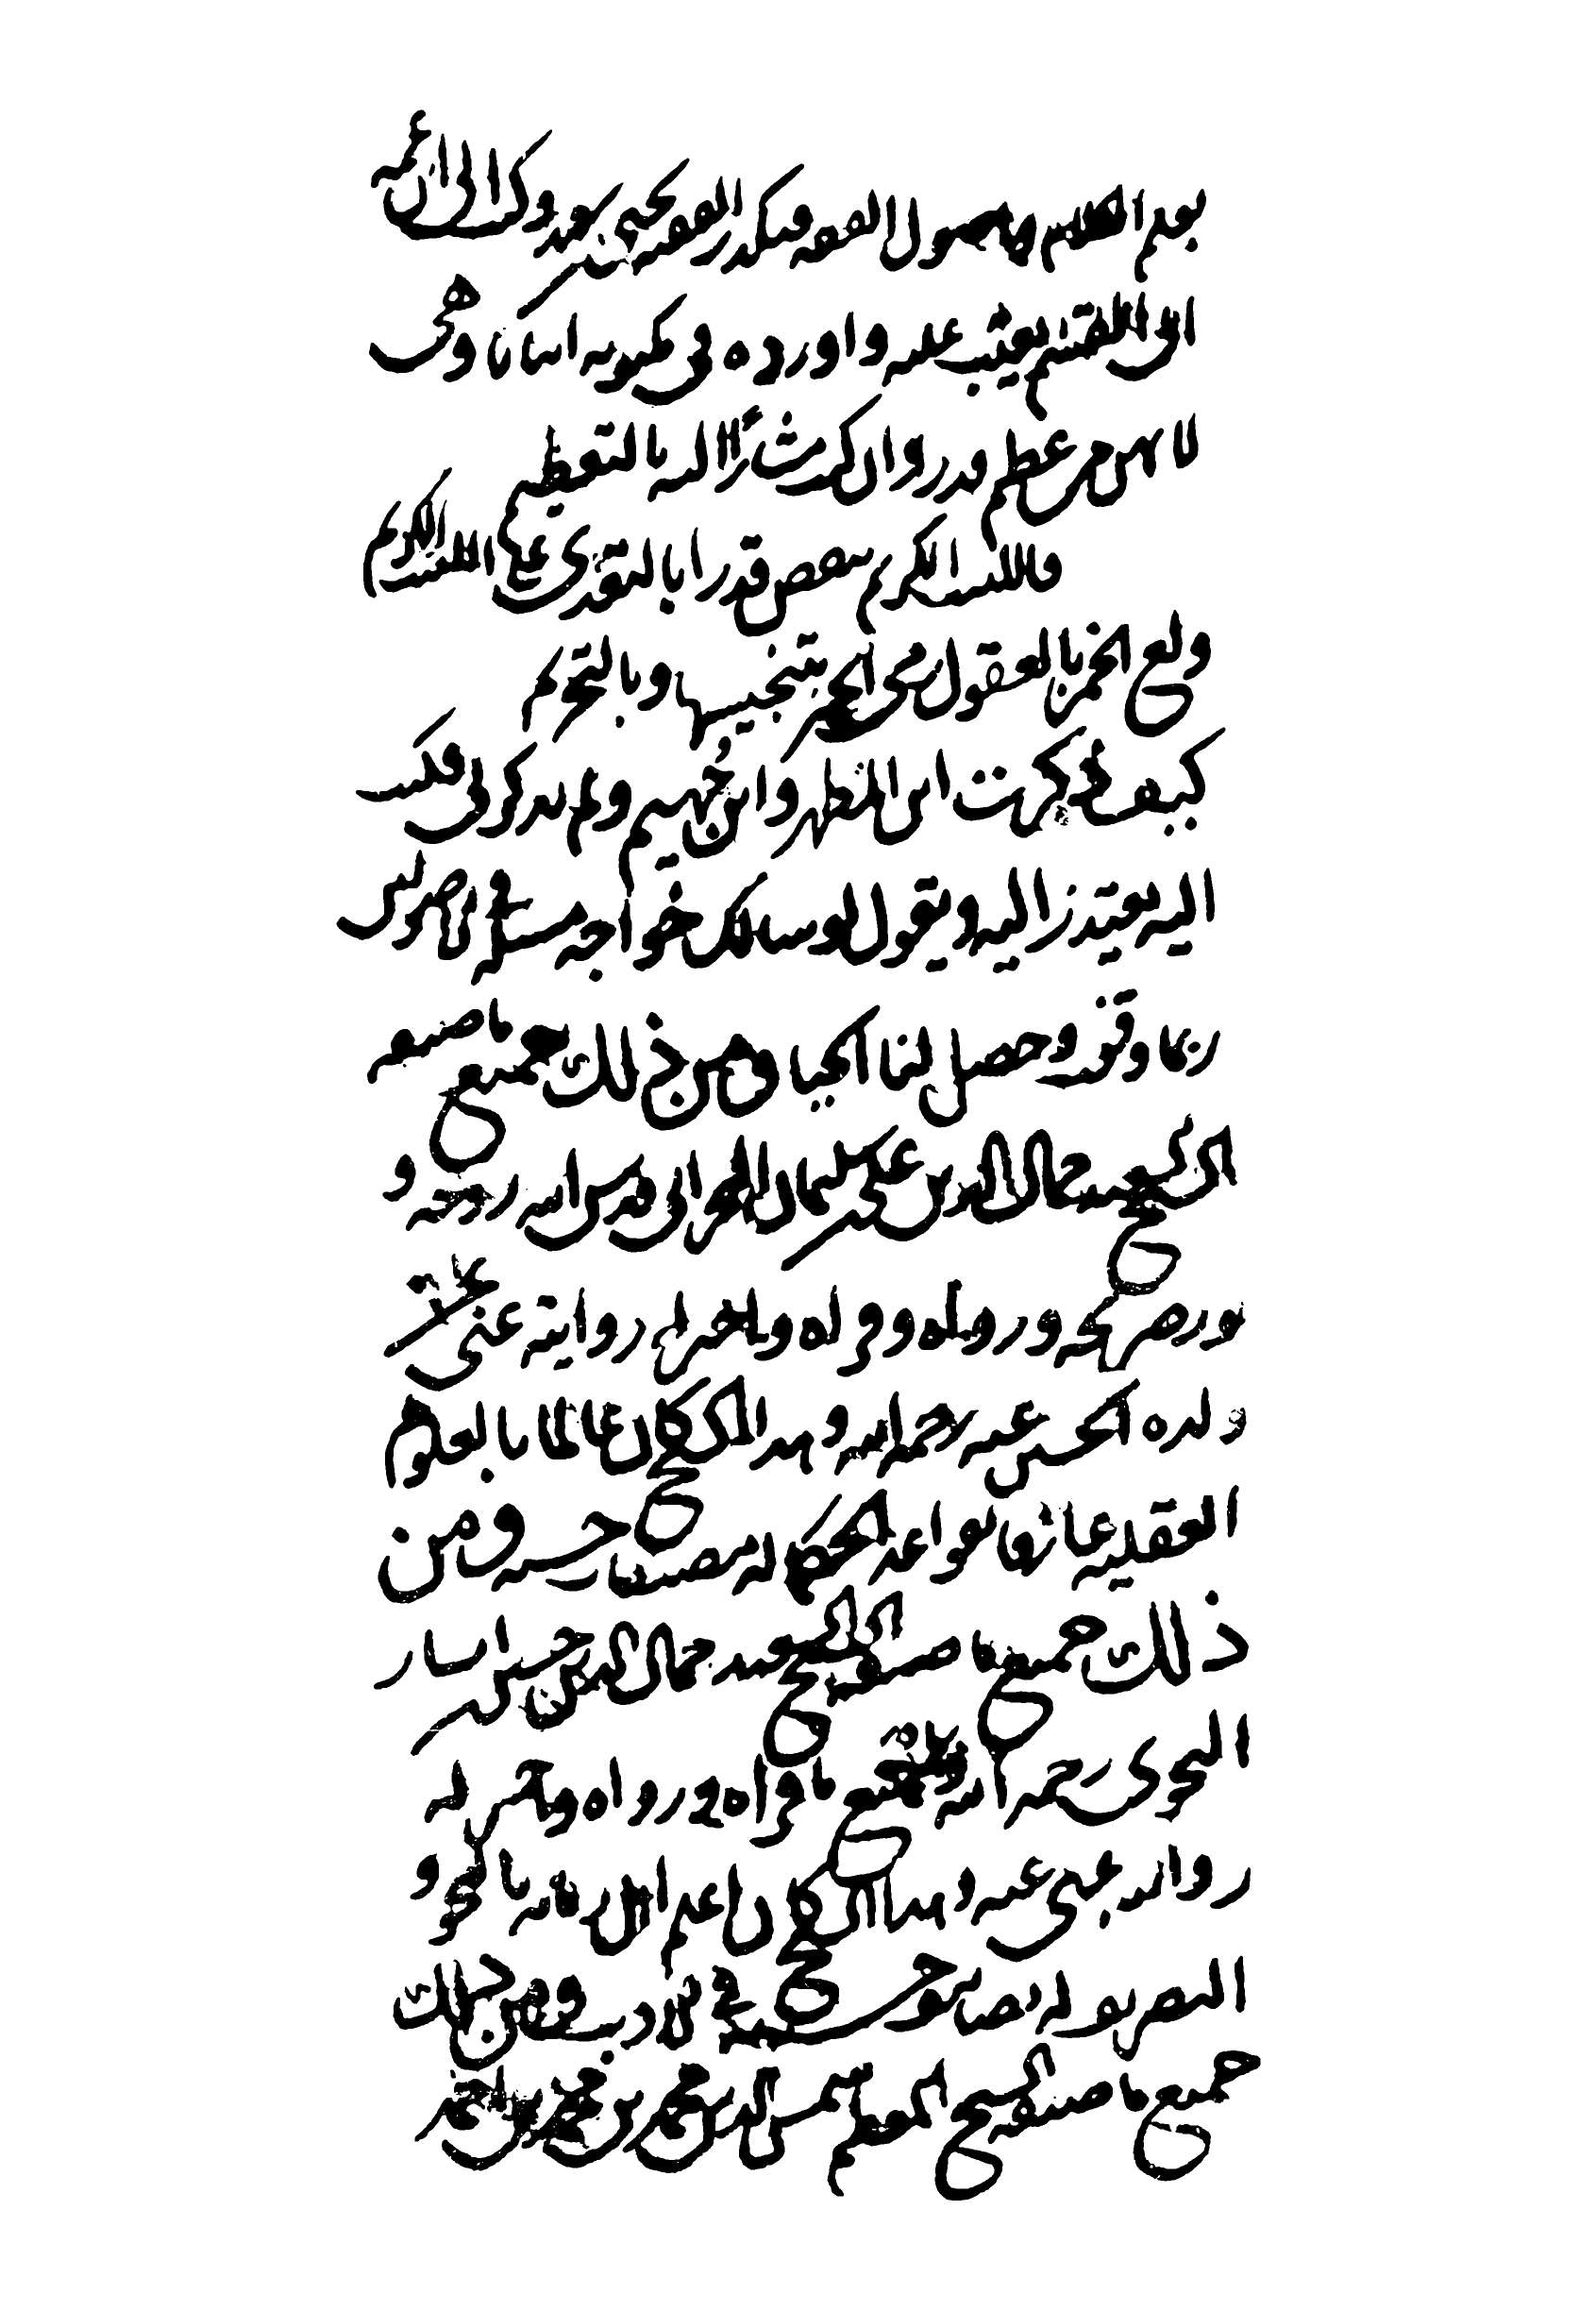 بعدم اعلمهم باصول الفقه فسكدر الفقيه يحيى بن سعيد وكتب الى ابن عمه
ابى القسم يعتب عليه واورد في مكتوبه ابياتا وهى
لا تهن من عظيم قدر وان كنت مشارا اليه بالتعظيم
فاللبيب الكريم ينقص قدرا بالتعدى على اللبيب الكريم
ولع الخمر بالعقول رمى الخمر بتنجيسها وبالتحريم
كيف ذكرت ابن المطهر وابن جهيم ولم تذكرنى فكتب
اليه يعتذر اليه ويقول لو سالك خواجه مسئلة في الاصولين
ربما وقفت وحصل لنا الحياء ومن ذلك جميع ما صنفه
الشيخ السعيد جمال الدين على بن سليمان البحراني قدس الله روحه و
نور ضريحه ورواه وقراه واجيز له روايته عنى عن
ولده الحسين عنه رحمه الله وهذا الشيخ كان عالما بالعلوم
العقلية عارفا بقواعد الحكماء له مصنفات حسنة ومن
ذلك جميع ما صنفه الشيخ السعيد جمال الدين حسين بن اياز
النحوى رحمه الله وجميع ما قراه ورواه واجيز له
روايته عنى عنه وهذا الشيخ كان اعلم اهل زمانه بالنحو و
التصريف له تصانيف حسنة في الادب ومن ذلك
جميع ما صنفه الشيخ المعظم شمس الدين محمد بن محمد بن احمد